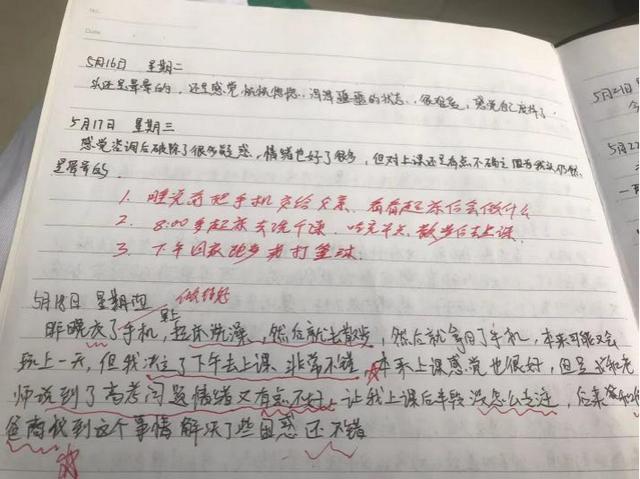 No.
Date
5月16日 星期二
头还是晕晕的，还是感觉恍恍惚惚，浑浑噩噩的状态，很难受，感觉自己废掉了
5月17日 星期三
感觉咨询后破除了很多疑惑，情绪也好了很多，但对上课还是有点不确定因为我头仍然
是晕晕的
1. 睡觉前把手机交给父亲，看看起床后会做什么
2. 8:00多起床去洗个澡，吃完早点，散步后去上课
3. 下午回来跑步或打篮球
5月18日 星期四 做得好
昨晚交了手机，早上起床洗澡，然后就去散步，然后就拿回了手机，本来可能又会
玩上一天，但我决定了下午去上课，非常不错，本来上课感觉也很好，但是
师说到了高考问题情绪又有点不好，让我上课后半段没怎么专注，后来
爸商讨到这个事情解决了些困惑还不错
5月21日
5月22